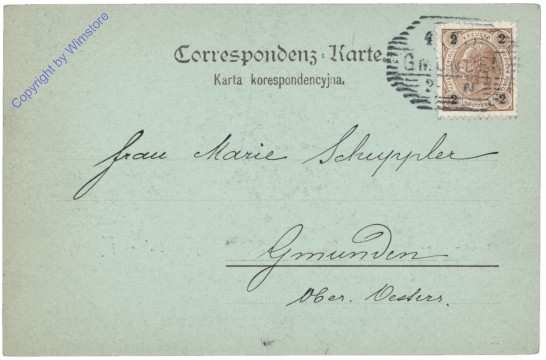 Copyright by Wimstore
Correspondenz-Karte
Karta korespondencyjna.
2 2
2 2
Frau Marie Schuppler
Gmunden
Ober. Oesterr.